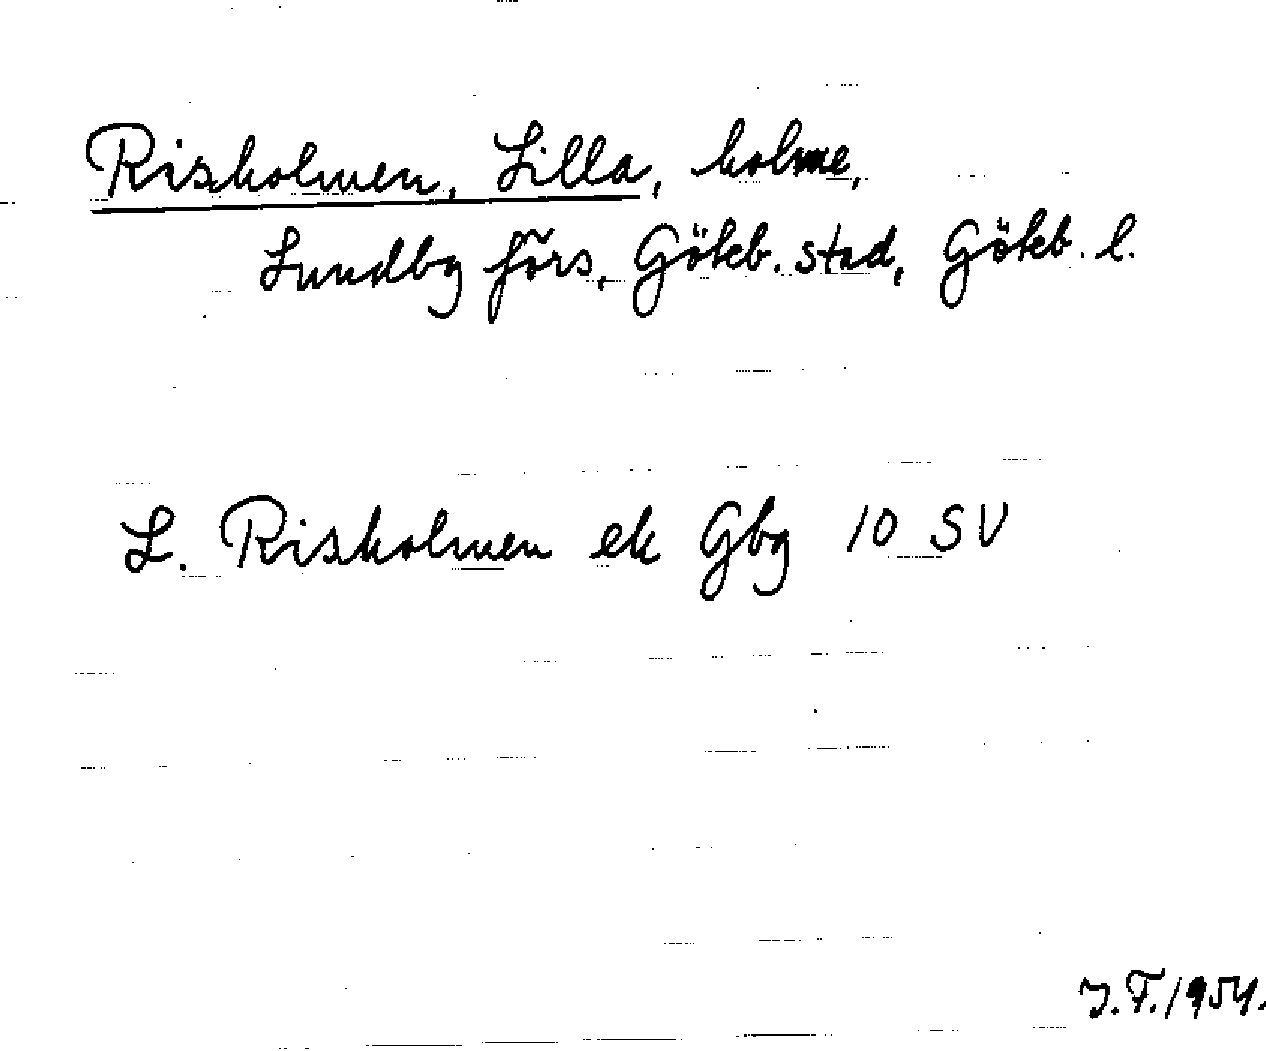 Risholmen, Lilla, holme,
Lundby förs, Göteb. stad, Göteb. l.
L. Risholmen ek Gbg 10 SV
J.F. 1954.